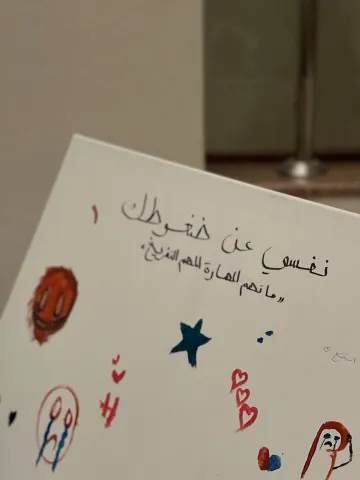 نفسي عن ضغوطك
"ما تهم المهارة المهم التفريغ"